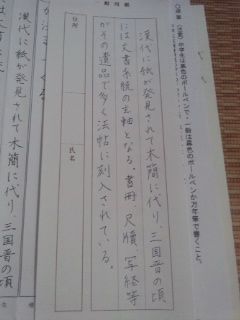 〇注意 (注意)中学生は黒色のボールペンで、一般は黒色のボールペンか万年筆で書くこと。
漢代に紙が発見されて木簡に代り、三国晋の頃
には文書系統の主軸となる。書冊、尺牘、写経等
がその遺品で多く法帖に刻入されている。
氏名
漢代に紙が発見されて木簡に代り、三国晋の頃